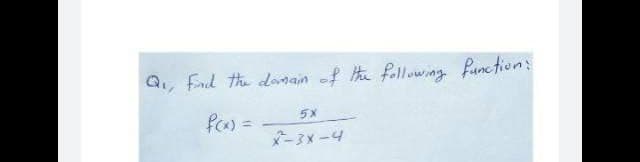 Q1, Find the domain of the following function:
f(x) = 5x / x²-3x-4